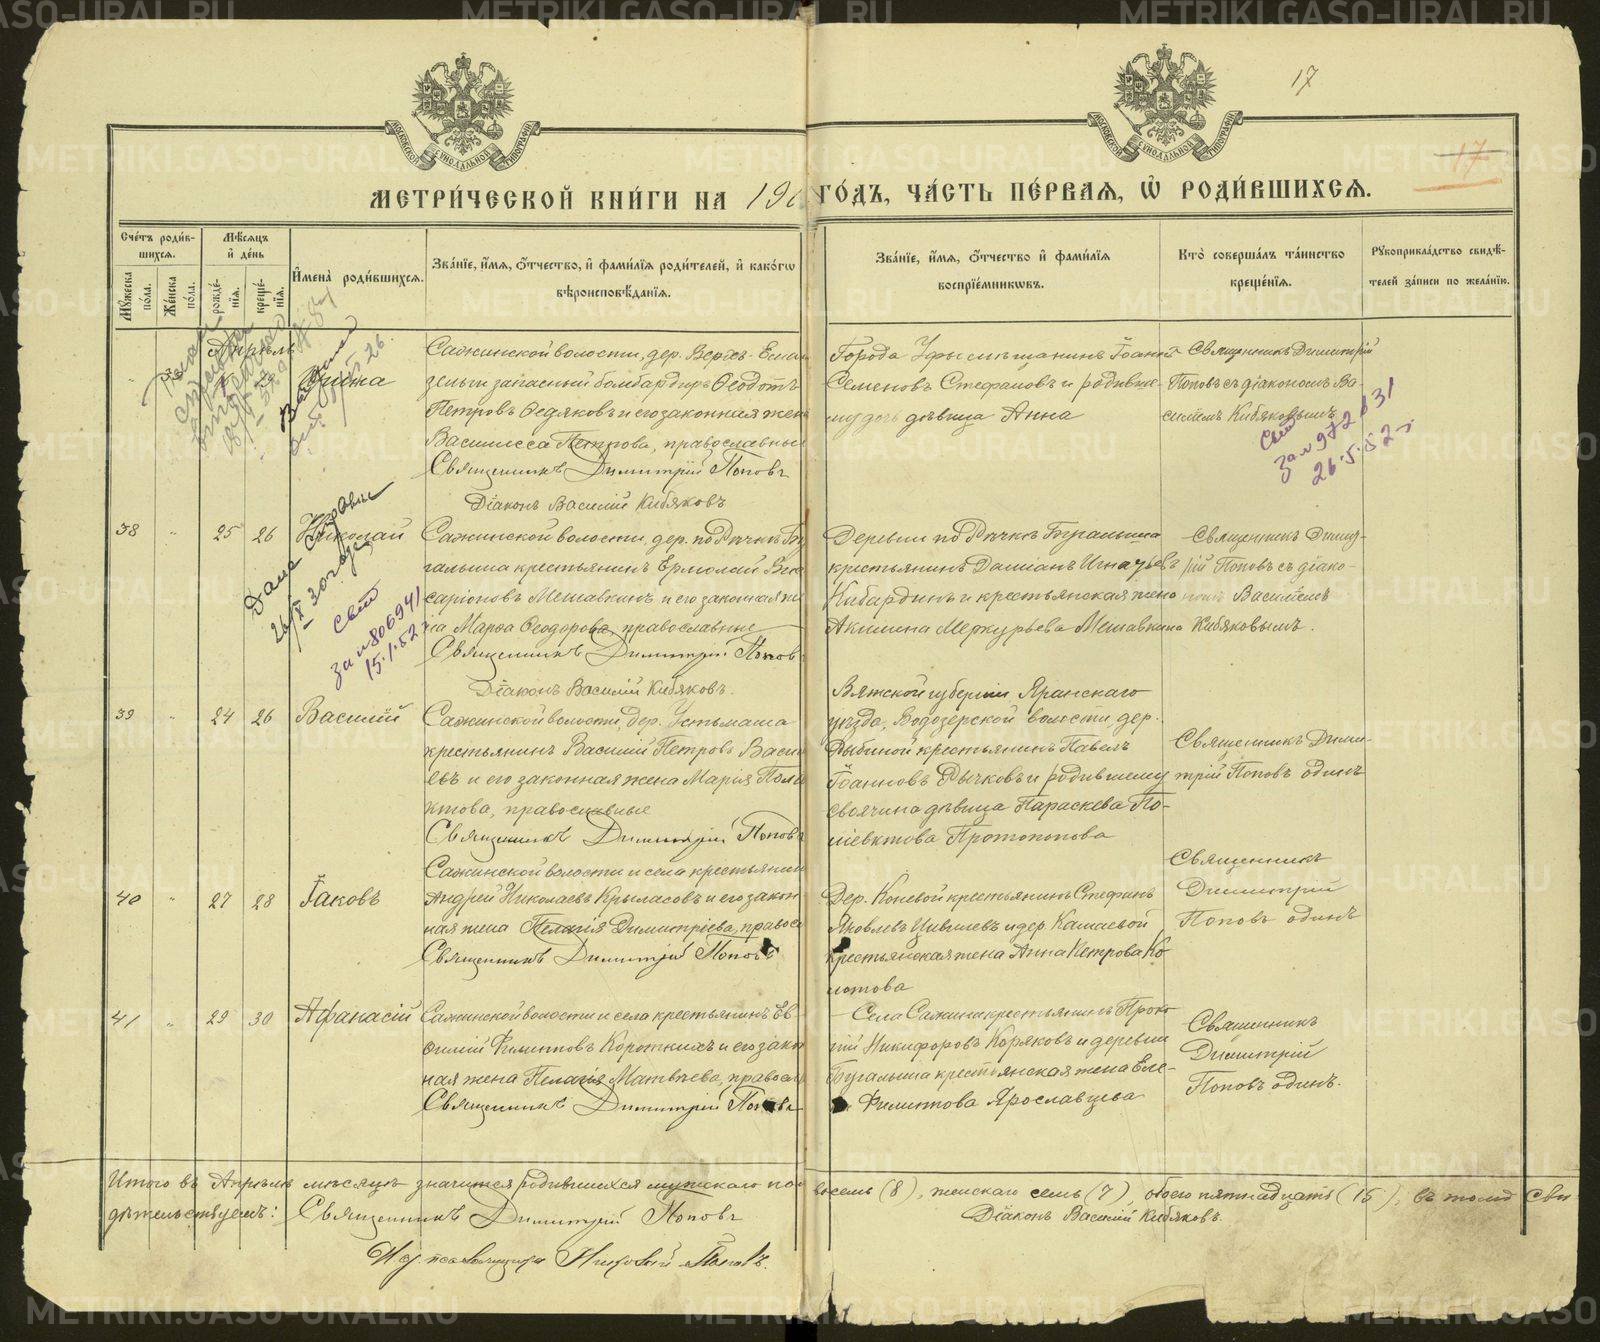 17
17
МЕТРИ́ЧЕСКОЙ КНИ́ГИ НА 190 ГО́ДЪ, ЧА́СТЬ ПЕ́РВАЯ, Ѡ҆ РОДИ́ВШИХСЯ.
Сче́тъ роди́в-
шихся.
Мѣ́сяцъ
и҆ де́нь
Му́жеска по́ла.
Же́нска по́ла.
рожде́-
нїя.
креще́-
нїя.
И҆мена̀ роди́вшихся.
Зва́нїе, и҆́мя, ѻ҆́тчество, и҆ фами́лїя роди́телей, и҆ како́гѡ
вѣроисповѣ́данїя.
Зва́нїе, и҆́мя, ѻ҆́тчество и҆ фами́лїя
воспрїе́мникѡвъ.
Кто̀ соверша́лъ та́инство
креще́нїя.
Рукоприкла́дство свидѣ́-
телей за́писи по жела́нїю.
Апрѣль
Сажинской волости, дер. Верхъ-
запасный бомбардиръ Ѳеодотъ
Петровъ Ѳедяковъ и его законная жен
Василисса Петрова, православны
Священникъ Димитрій Поповъ
Діаконъ Василій Кибяковъ
Города Уфы мѣщанинъ Іоаннъ
Семеновъ Стефановъ и родивше-
му дочь дѣвица Анна
Священникъ Димитрій
Поповъ съ діакономъ Ва-
силіемъ Кибяковымъ
за № 972831
38 " 25 26 Николай
Сажинской волости, дер. по Рѣчкѣ Бу
галыша крестьянинъ Ермолай Вис
саріоновъ Мешавкинъ и его законная же
на Марѳа Ѳеодорова, православные
Священникъ Димитрій Поповъ
Діаконъ Василій Кибяковъ.
Деревни по Рѣчкѣ Бугалыша
крестьянинъ Даміанъ Игнатьевъ
Кабардинъ и крестьянская жена
Акилина Меркурьева Мешавкина
Священникъ Димит-
рій Поповъ съ діако-
номъ Василіемъ
Кибяковымъ.
за № 806941
15.1.52
39 " 24 26 Василій
Сажинской волости, дер. Устьмаша
крестьянинъ Василій Петровъ Васил
евъ и его законная жена Марія Поли
ктова, православные
Священникъ Димитрій Поповъ
Вятской губерніи Яранскаго
уѣзда, Водозерской волости, дер.
Рыбиной крестьянинъ Павелъ
Іоанновъ Рычковъ и родившему
своячина дѣвица Параскева По-
ліевктова Протопопова
Священникъ Дими-
трій Поповъ одинъ
40 " 27 28 Іаковъ
Сажинской волости и села крестьянин
Андрей Николаевъ Крыласовъ и его закон
ная жена Пелагія Димитріева, правосл
Священникъ Димитрій Поповъ
Дер. Коневой крестьянинъ Стефанъ
Яковлевъ Цивилевъ и дер. Камаевой
крестьянская жена Анна Петрова Ко
Священникъ
Димитрій
Поповъ одинъ
41 " 29 30 Афанасій
Сажинской волости и села крестьянинъ Ев
ѳимій Филиповъ Коротких и его закон
ная жена Пелагія Матвѣева, правосл
Священникъ Димитрій Попов
Села Сажина крестьянинъ Проко
пій Никифоровъ Коряковъ и деревни
Бугалыша крестьянская жена Еле-
на Филиппова Ярославцева
Священникъ
Димитрій
Поповъ одинъ.
Итого въ Апрѣлѣ мѣсяцѣ значится родившихся мужскаго по восемь (8), женскаго семь (7), обоего пятнадцать (15), въ томъ сви
дѣтельствуемъ: Священникъ Димитрій Поповъ
Діаконъ Василій Кибяковъ.
Поповъ.
METRIKI.GASO-URAL.RU